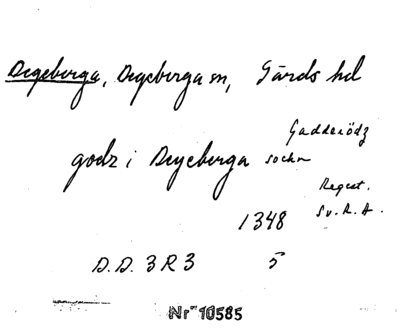 Degeberga, Degeberga sn, Gärds hd
Gadderödz
godz i Degeberga sochn
Regest.
1348 Sv. R. A.
D. D. 3 R 3 5
Nr 10585